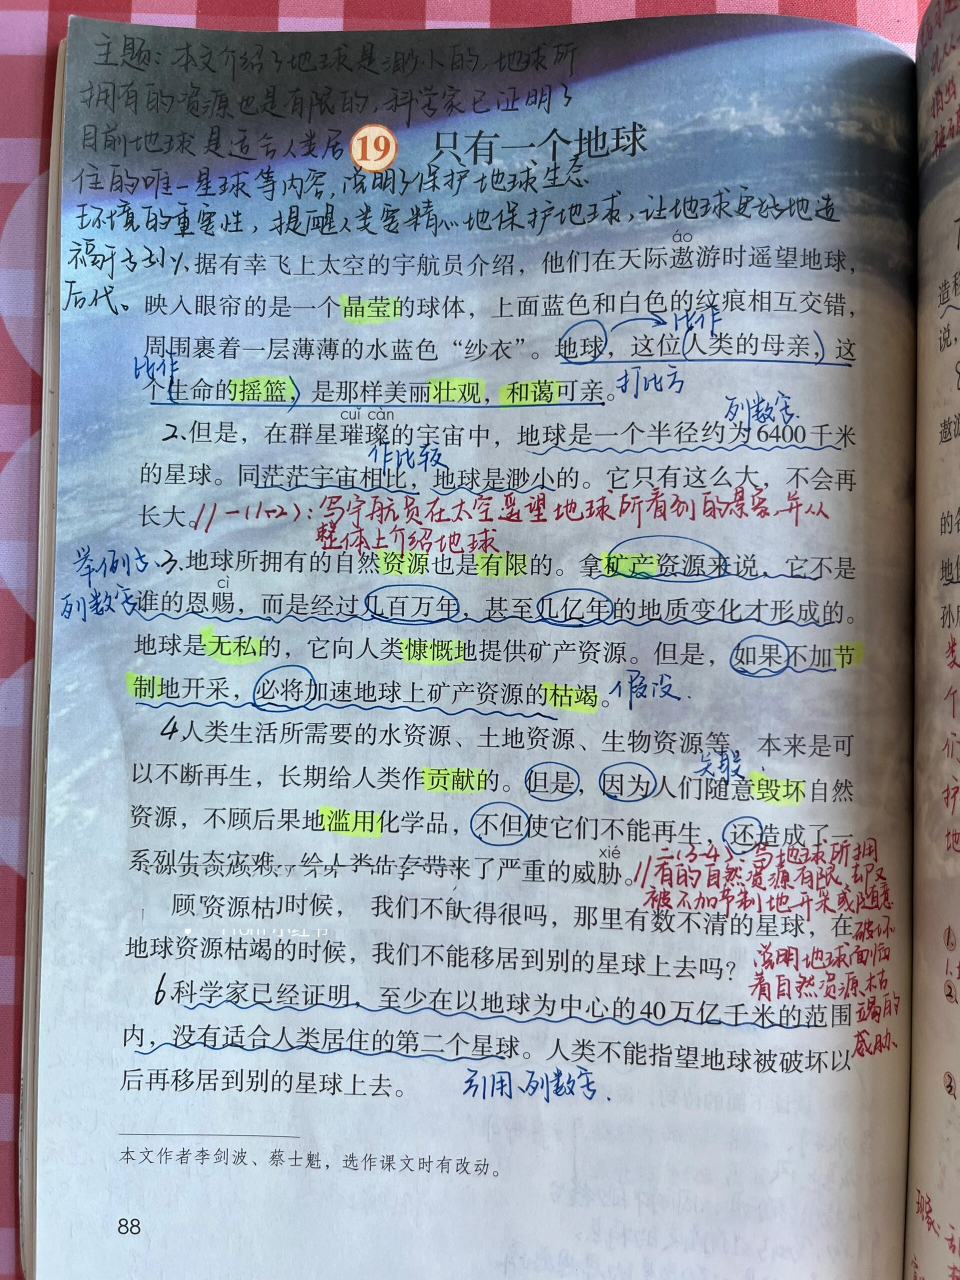 主题：本文介绍了地球是渺小的，地球所
拥有的资源也是有限的，科学家已证明了
目前地球是适合人类居
19 只有一个地球
住的唯一星球等内容，说明了保护地球生态
环境的重要性，提醒人类要精心地保护地球，让地球更好地造
福子孙
后代。
áo
1.据有幸飞上太空的宇航员介绍，他们在天际遨游时遥望地球，
映入眼帘的是一个晶莹的球体，上面蓝色和白色的纹痕相互交错，
比作
周围裹着一层薄薄的水蓝色“纱衣”。地球，这位（人类的母亲，）这
比作
个（生命的摇篮，）是那样美丽壮观，和蔼可亲。打比方
cuǐ càn
列数字
2.但是，在群星璀璨的宇宙中，地球是一个半径约为6400千米
作比较
的星球。同茫茫宇宙相比，地球是渺小的。它只有这么大，不会再
长大。//一(1-2)：写宇航员在太空遥望地球所看到的景象，并从
整体上介绍地球
举例子、
列数字
3.地球所拥有的自然资源也是有限的。拿矿产资源来说，它不是
cì
谁的恩赐，而是经过几百万年，甚至几亿年的地质变化才形成的。
地球是无私的，它向人类慷慨地提供矿产资源。但是，如果不加节
制地开采，必将加速地球上矿产资源的枯竭。假设
4人类生活所需要的水资源、土地资源、生物资源等，本来是可
关联
以不断再生，长期给人类作贡献的。但是，因为人们随意毁坏自然
资源，不顾后果地滥用化学品，不但使它们不能再生，还造成了一
xié
系列生态灾难，给人类生存带来了严重的威胁。
//二(3-4)：写地球所拥
有的自然资源有限，却又
被不加节制地开采或随意
破坏
说明地球面临
着自然资源枯
竭的
威胁、
时候，我们不 得很吗，那里有数不清的星球，在
地球资源枯竭的时候，我们不能移居到别的星球上去吗？
6.科学家已经证明，至少在以地球为中心的40万亿千米的范围
内，没有适合人类居住的第二个星球。人类不能指望地球被破坏以
后再移居到别的星球上去。引用、列数字.
本文作者李剑波、蔡士魁，选作课文时有改动。
88